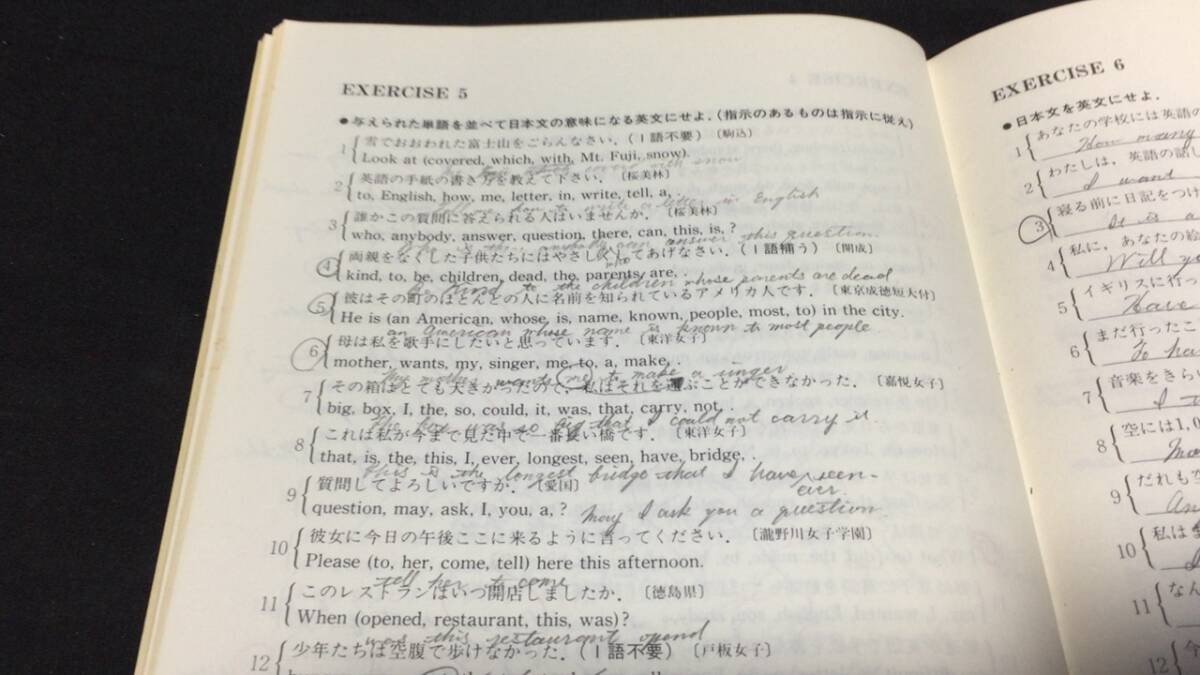 EXERCISE 5
●与えられた単語を並べて日本文の意味になる英文にせよ.(指示のあるものは指示に従え)
1 雪でおおわれた富士山をごらんなさい.(1語不要)〔駒込〕
Look at (covered, which, with, Mt. Fuji, snow).
with snow
2 英語の手紙の書き方を教えて下さい.〔桜美林〕
to, English, how, me, letter, in, write, tell, a, .
how to write a letter in English
3 誰かこの質問に答えられる人はいませんか.〔桜美林〕
who, anybody, answer, question, there, can, this, is, ?
Who is there anybody can answer this question
4 両親をなくした子供たちにはやさしくしてあげなさい.(1語補う)〔開成〕
kind, to, be, children, dead, the, parents, are, .
Be kind to the children whose parents are dead
5 彼はその町のほとんどの人に名前を知られているアメリカ人です.〔東京成徳短大付〕
He is (an American, whose, is, name, known, people, most, to) in the city.
an American whose name is known to most people
6 母は私を歌手にしたいと思っています.〔東洋女子〕
mother, wants, my, singer, me, to, a, make, .
My mother wants me to make a singer
7 その箱はとても大きかったので,私はそれを運ぶことができなかった.〔嘉悦女子〕
big, box, I, the, so, could, it, was, that, carry, not, .
The box was so big that I could not carry it.
8 これは私が今まで見た中で一番長い橋です.〔東洋女子〕
that, is, the, this, I, ever, longest, seen, have, bridge, .
This is the longest bridge that I have seen
ever
9 質問してよろしいですか.〔愛国〕
question, may, ask, I, you, a, ?
May I ask you a question
10 彼女に今日の午後ここに来るように言ってください.〔瀧野川女子学園〕
Please (to, her, come, tell) here this afternoon.
tell her to come
11 このレストランはいつ開店しましたか.〔徳島県〕
When (opened, restaurant, this, was)?
was this restaurant opend
12 少年たちは空腹で歩けなかった.(1語不要)〔戸板女子〕
EXERCISE 6
●日本文を英文にせよ.
1 あなたの学校には英語の
How many
2 わたしは,英語の話し
I want
3 寝る前に日記をつけ
It is a
4 私に,あなたの絵
Will yo
5 イギリスに行っ
Have
6 まだ行ったこ
To ha
7 音楽をきらい
I
8 空には1,0
Ma
9 だれも空
An
10 私は
11 なん
12 今